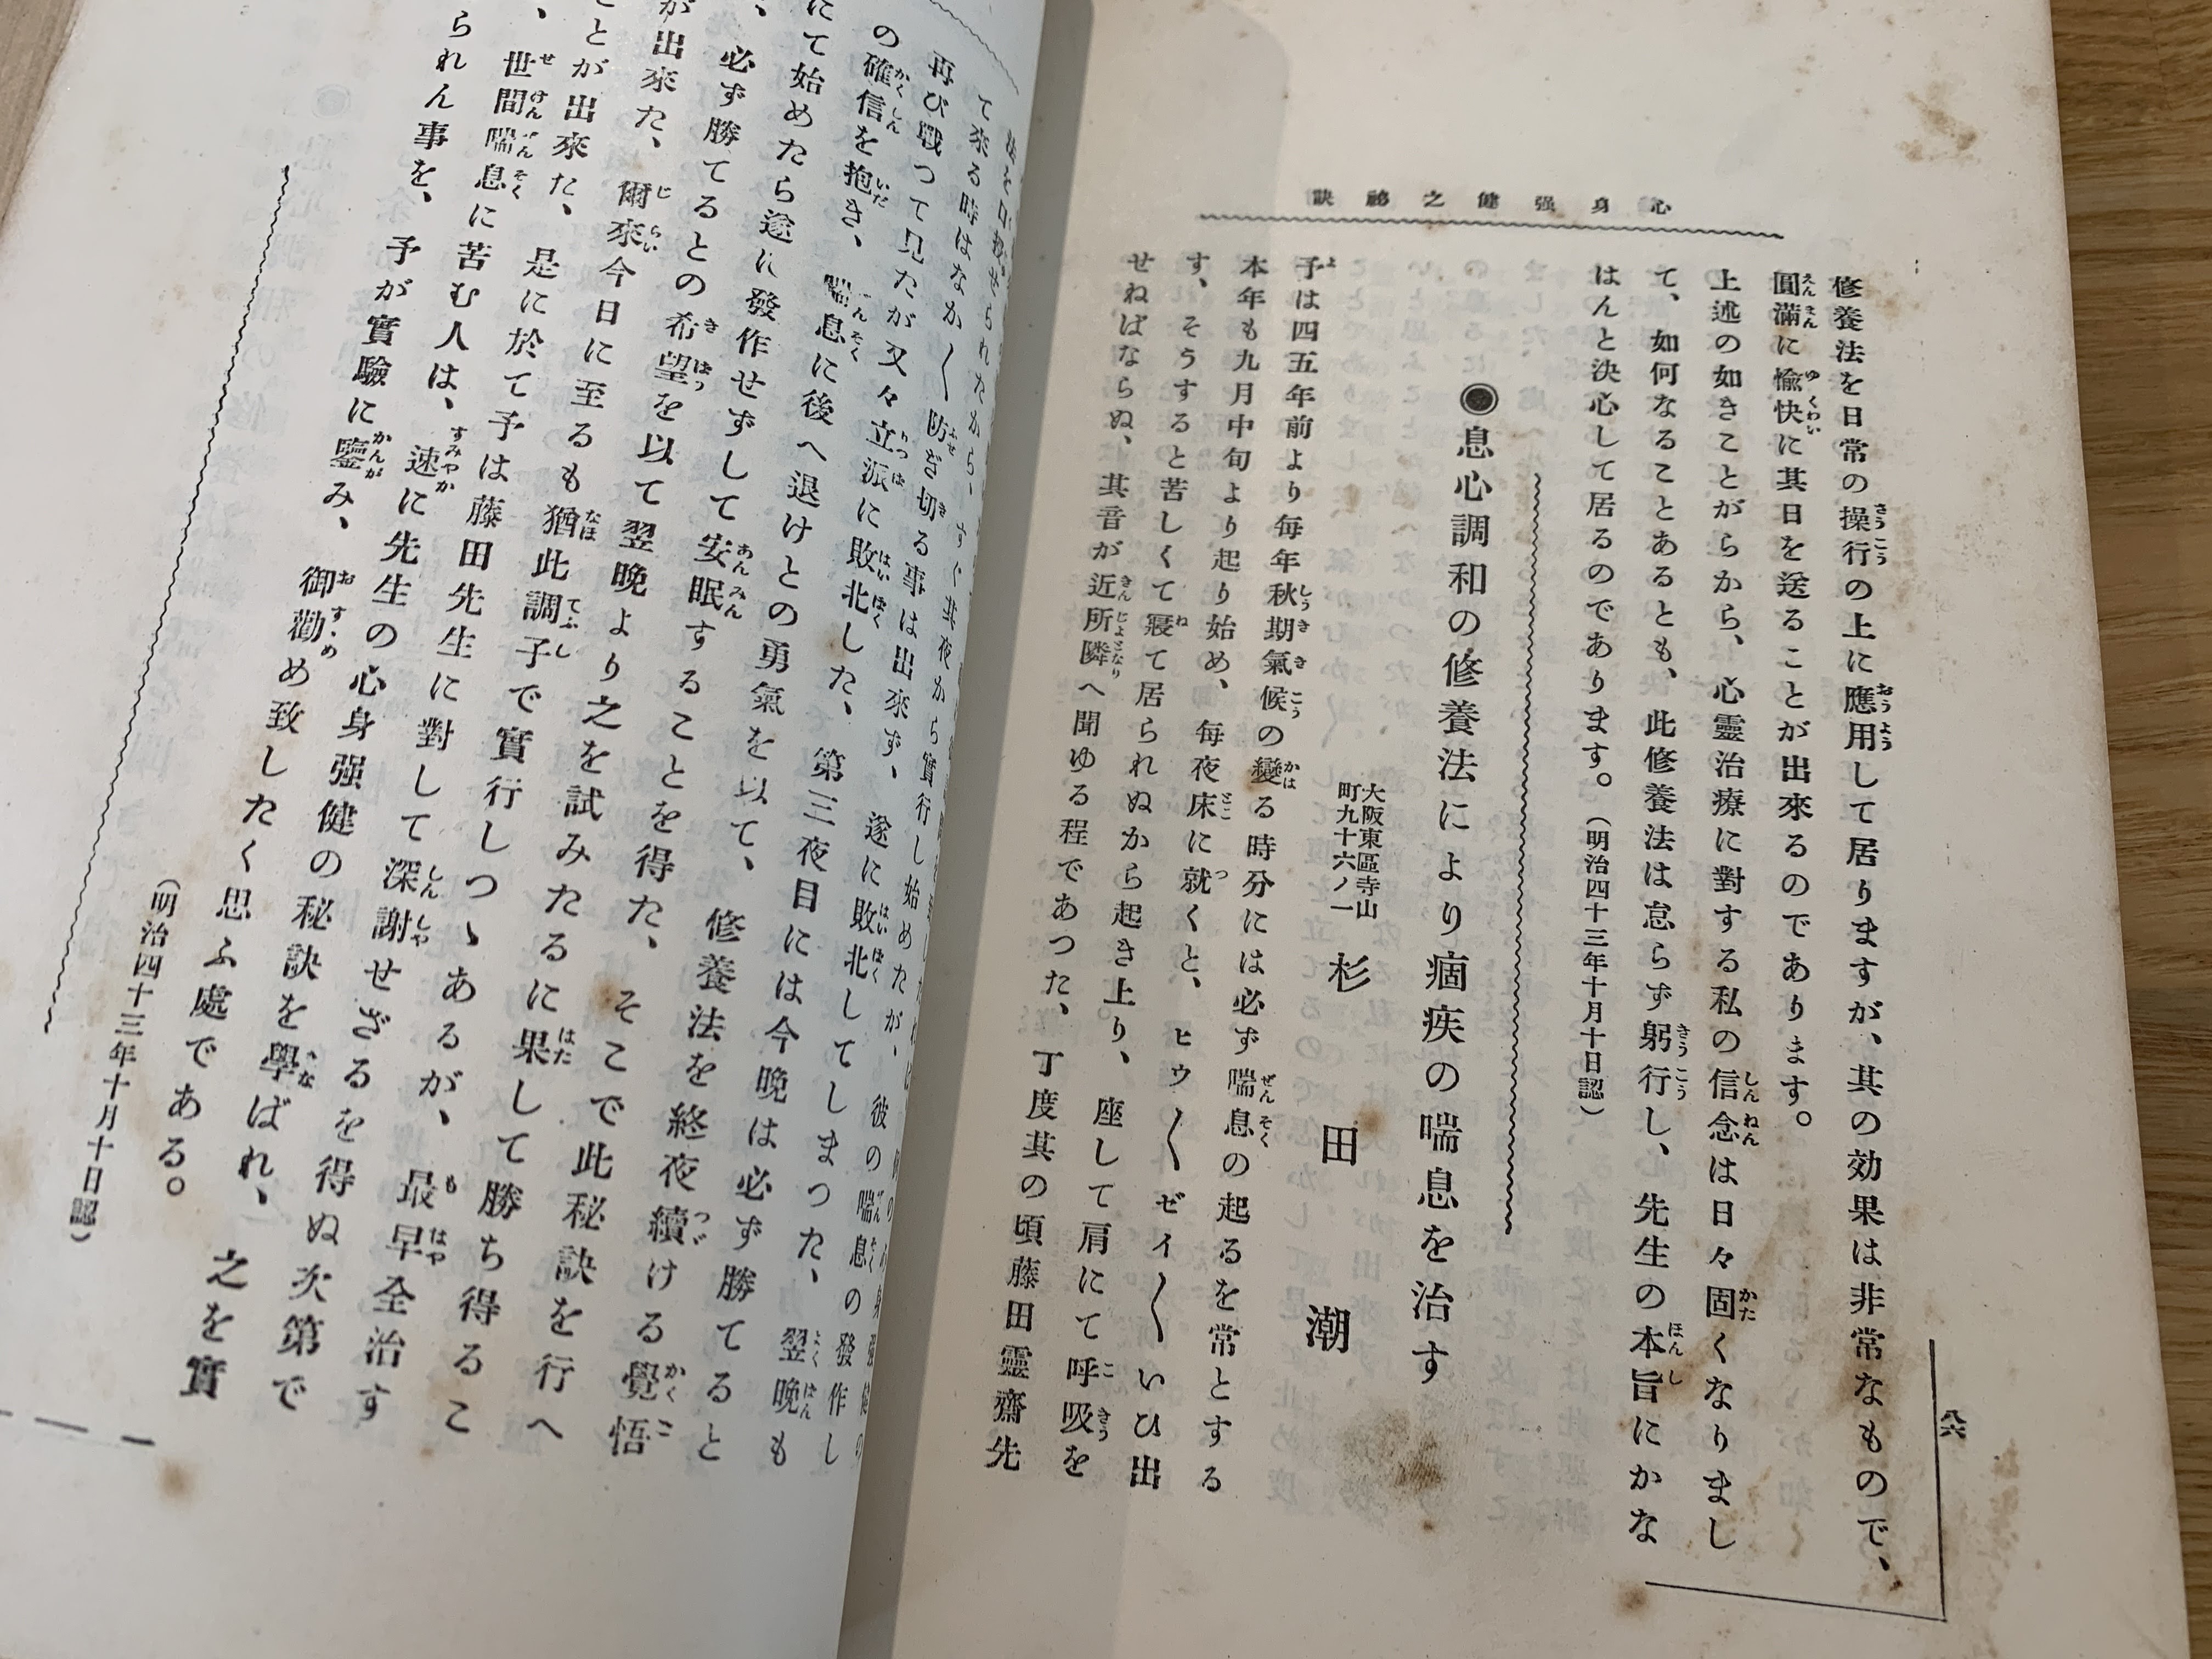 心身强健之祕訣
八六
修養法を日常の操行の上に應用して居りますが、其の効果は非常なもので、
圓滿に愉快に其日を送ることが出來るのであります。
上述の如きことがらから、心靈治療に對する私の信念は日々固くなりまし
て、如何なることあるとも、此修養法は怠らず躬行し、先生の本旨にかな
はんと決心して居るのであります。（明治四十三年十月十日認）
◉息心調和の修養法により痼疾の喘息を治す
大阪東區寺山
町九十六ノ一
杉田潮
予は四五年前より每年秋期氣候の變る時分には必ず喘息の起るを常とする
本年も九月中旬より起り始め、每夜床に就くと、ヒゥ〱ゼイ〱いひ出
す、そうすると苦しくて寢て居られぬから起き上り、座して肩にて呼吸を
せねばならぬ、其音が近所隣へ聞ゆる程であつた、丁度其の頃藤田靈齋先
て來る時はなか〱防ぎ切る事は出來ず、遂に敗北してしまつた、翌晩も
再び戰つて見たが又々立派に敗北した、第三夜目には今晩は必ず勝てると
の確信を抱き、喘息に後へ退けとの勇氣を以て、修養法を終夜續ける覺悟
にて始めたら遂に發作せずして安眠することを得た、そこで此秘訣を行へ
、必ず勝てるとの希望を以て翌晩より之を試みたるに果して勝ち得るこ
が出來た、爾來今日に至るも猶此調子で實行しつゝあるが、最早全治す
ことが出來た、是に於て予は藤田先生に對して深謝せざるを得ぬ次第で
、世間喘息に苦む人は、速に先生の心身强健の秘訣を學ばれ、之を實
られん事を、予が實驗に鑒み、御勸め致したく思ふ處である。
（明治四十三年十月十日認）